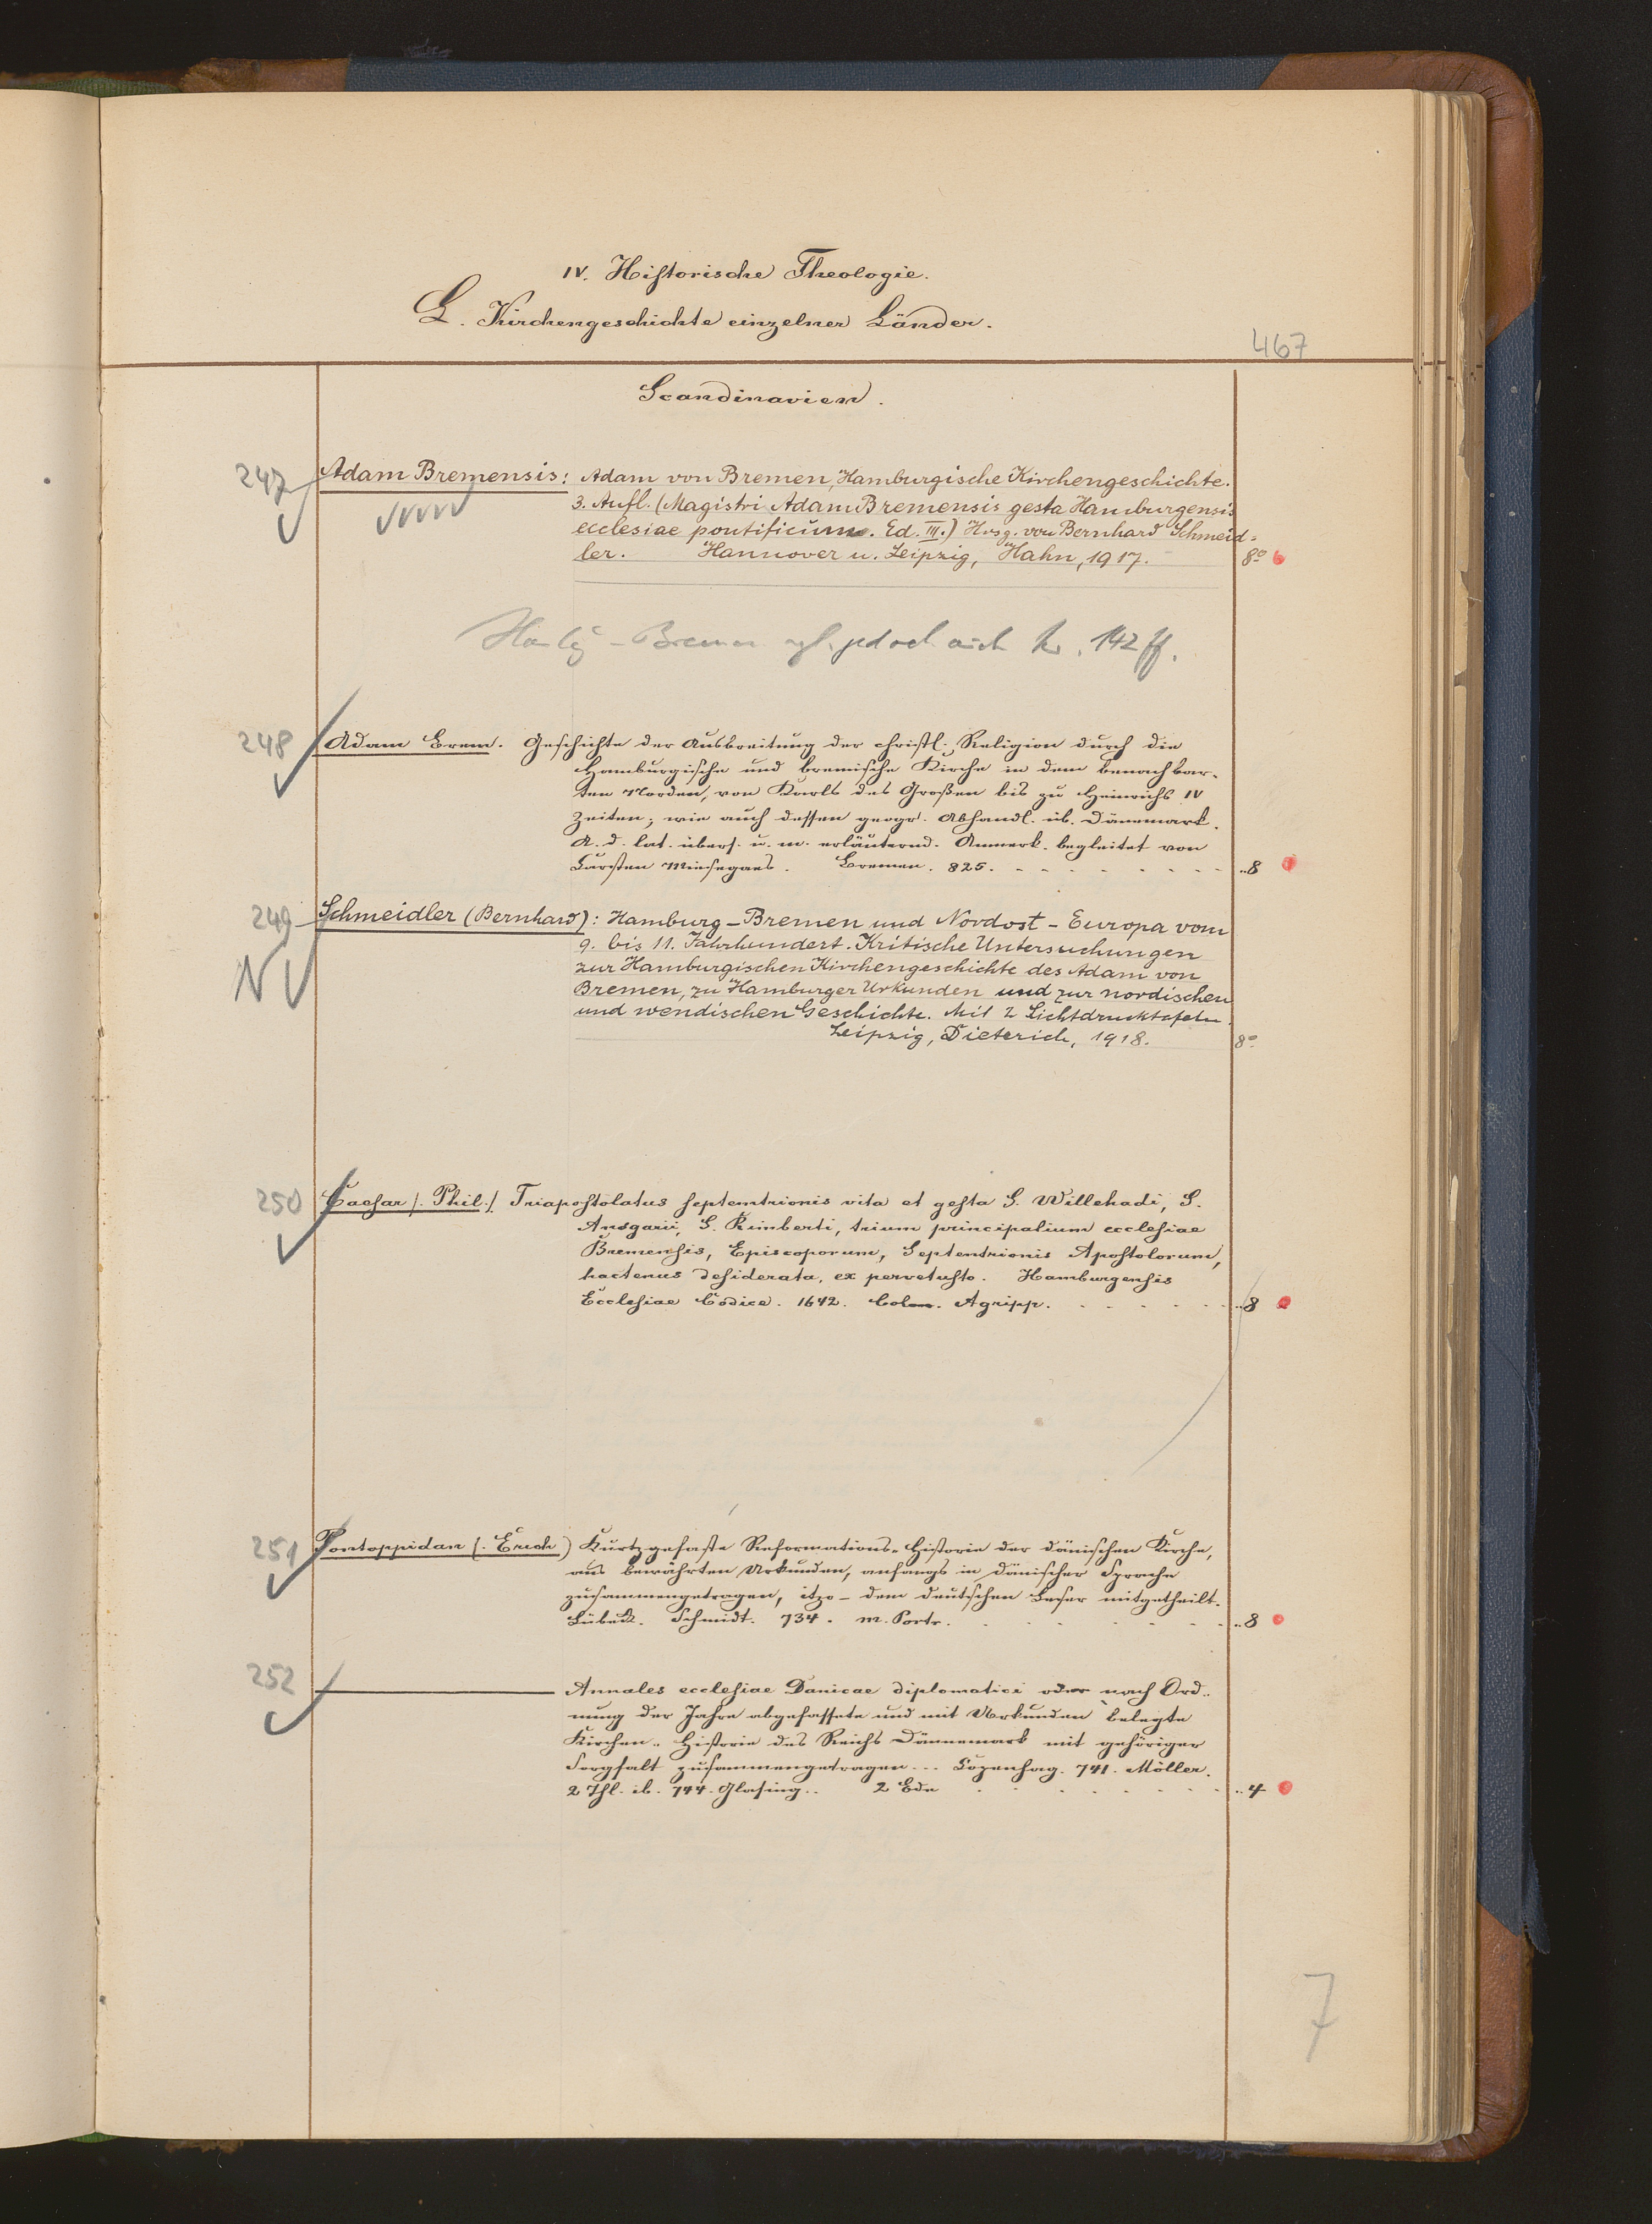 IV. Historische Theologie.
L. Kirchengeschichte einzelner Länder.
467
Scandinavien.
247 Adam Bremensis: Adam von Bremen, Hamburgische Kirchengeschichte.
3. Aufl. (Magistri Adam Bremensis gesta Hamburgensis
ecclesiae pontificum. Ed. III.) Hrsg. von Bernhard Schmeid=
ler. Hannover u. Leipzig, Hahn, 1917. 8°
Hambg - Bremen vgl. jedoch auch Nr. 142 ff.
248 Adam Brem. Geschichte der Ausbreitung der christl. Religion durch die
Hamburgische und bremische Kirche in dem benachbar-
ten Norden, von Karls des Großen bis zu Heinrichs IV
Zeiten; wie auch dessen geogr. Abhandl. üb. Dänemark.
A. d. lat. übers. u. m. erläuternd. Anmerk. begleitet von
Carsten Miesegaes. Bremen. 825. 8
249 Schmeidler (Bernhard): Hamburg-Bremen und Nordost-Europa vom
9. bis 11. Jahrhundert. Kritische Untersuchungen
zur Hamburgischen Kirchengeschichte des Adam von
Bremen, zu Hamburger Urkunden und zur nordischen
N und wendischen Geschichte. Mit 2 Lichtdrucktafeln.
Leipzig, Dieterich, 1918. 8°
250 Caesar (. Phil.) Triapostolatus septemtrionis vita et gesta S. Willehadi, S.
Ansgarii, S. Rimberti, trium principalium ecclesiae
Bremensis, Episcoporum, Septentrionis Apostolorum,
hactenus desiderata, ex pervetusto. Hamburgensis
Ecclesiae Codice. 1642. Colon. Agripp. 8
251 Pontoppidan (. Erich) Kurtzgefaste Reformations-Historie der dänischen Kirche,
aus bewährten Urkunden, anfangs in dänischer Sprache
zusammengetragen, itzo - dem deutschen Leser mitgetheilt.
Lübeck. Schmidt. 734. m. Portr. 8
252 ——— Annales ecclesiae Danicae diplomatici oder nach Ord-
nung der Jahre abgefassete und mit Urkunden belegte
Kirchen-Historie des Reichs Dännemark mit gehöriger
Sorgfalt zusammengetragen... Copenhag. 741. Möller.
2 Thl. ib. 744. Glasing.. 2 Bde 4
7